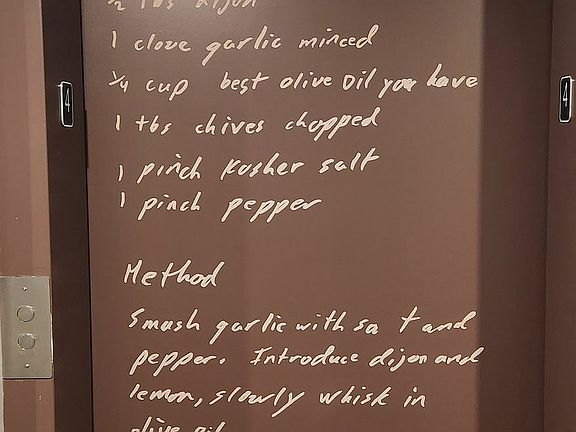 ½ tbs dijon
1 clove garlic minced
¼ cup best olive oil you have
1 tbs chives chopped
1 pinch Kosher salt
1 pinch pepper
4
4
Method
Smash garlic with sa t and
pepper. Introduce dijon and
lemon, slowly whisk in
olive oil